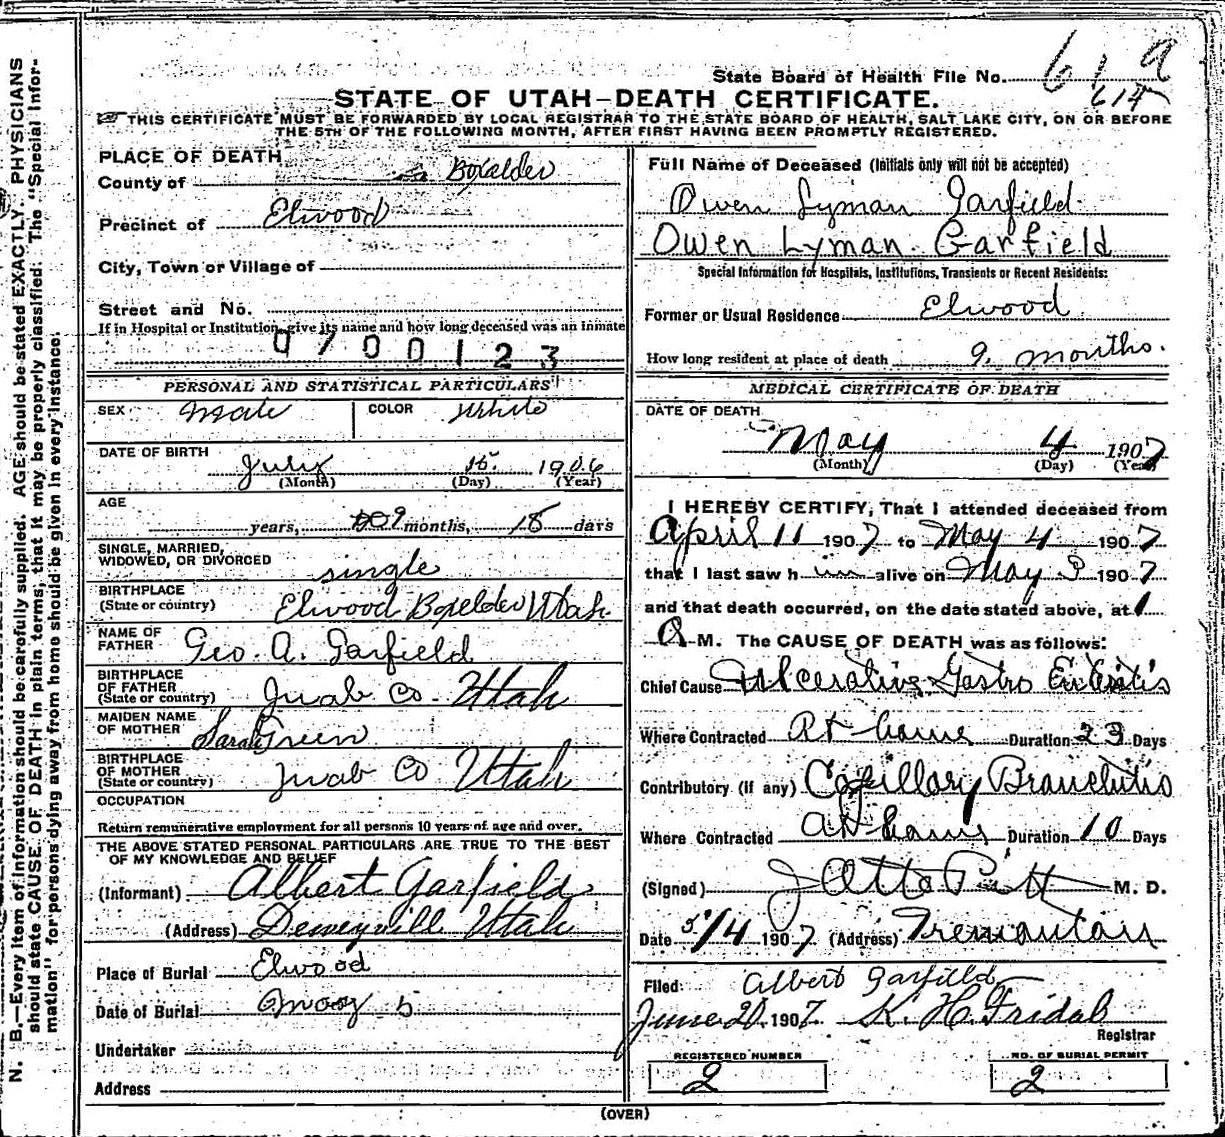 State Board of Health File No. 61 a
614
STATE OF UTAH—DEATH CERTIFICATE.
THIS CERTIFICATE MUST BE FORWARDED BY LOCAL REGISTRAR TO THE STATE BOARD OF HEALTH, SALT LAKE CITY, ON OR BEFORE
THE 5TH OF THE FOLLOWING MONTH, AFTER FIRST HAVING BEEN PROMPTLY REGISTERED.
N. B.—Every item of information should be carefully supplied. AGE should be stated EXACTLY. PHYSICIANS
should state CAUSE OF DEATH in plain terms, that it may be properly classified. The "Special Infor-
mation" for persons dying away from home should be given in every instance.
PLACE OF DEATH
County of Boxelder
Precinct of Elwood
City, Town or Village of
Street and No.
If in Hospital or Institution, give its name and how long deceased was an inmate
0700123
PERSONAL AND STATISTICAL PARTICULARS
SEX male COLOR White
DATE OF BIRTH
July 15. 1906
(Month) (Day) (Year)
AGE
years, 9 months, 18 days
SINGLE, MARRIED,
WIDOWED, OR DIVORCED single
BIRTHPLACE
(State or country) Elwood Boxelder Utah.
NAME OF
FATHER Geo. A. Garfield
BIRTHPLACE
OF FATHER
(State or country) Juab Co Utah
MAIDEN NAME
OF MOTHER Sarah Green
BIRTHPLACE
OF MOTHER
(State or country) Juab Co Utah
OCCUPATION
Return remunerative employment for all persons 10 years of age and over.
THE ABOVE STATED PERSONAL PARTICULARS ARE TRUE TO THE BEST
OF MY KNOWLEDGE AND BELIEF
(Informant) Albert Garfield
(Address) Deweyvill Utah
Place of Burial Elwood
Date of Burial May 5
Undertaker
Address
Full Name of Deceased (Initials only will not be accepted)
Owen Lyman Garfield
Owen Lyman Garfield
Special Information for Hospitals, Institutions, Transients or Recent Residents:
Former or Usual Residence Elwood
How long resident at place of death 9. months.
MEDICAL CERTIFICATE OF DEATH
DATE OF DEATH
May 4 1907
(Month) (Day) (Year)
I HEREBY CERTIFY, That I attended deceased from
April 11 1907 to May 4 1907
that I last saw him alive on May 3 1907
and that death occurred, on the date stated above, at 1
A M. The CAUSE OF DEATH was as follows:
Chief Cause Ulcerative Gastro Enteritis
Where Contracted At home Duration 23 Days
Contributory (if any) Capillary Bronchitis
Where Contracted At home Duration 10 Days
(Signed) J Otto Pitt M. D.
Date 5/4 1907 (Address) Tremonton
Filed: Albert Garfield
June 20. 1907. K. H. Fridal
Registrar
REGISTERED NUMBER
2
NO. OF BURIAL PERMIT
2
(OVER)